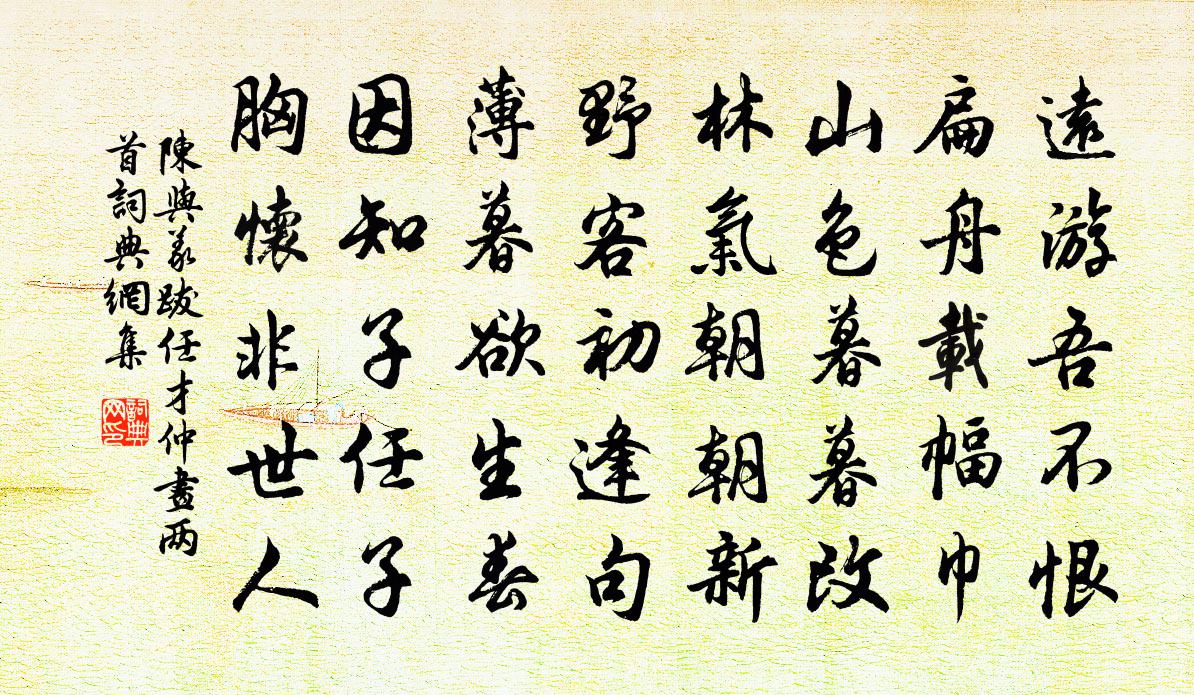 遠游吾不恨
扁舟載幅巾
山色暮暮改
林氣朝朝新
野客初逢句
薄暮欲生春
因知子任子
胸懷非世人
陳與義跋任才仲畫两
首詞典網集
詞典网印